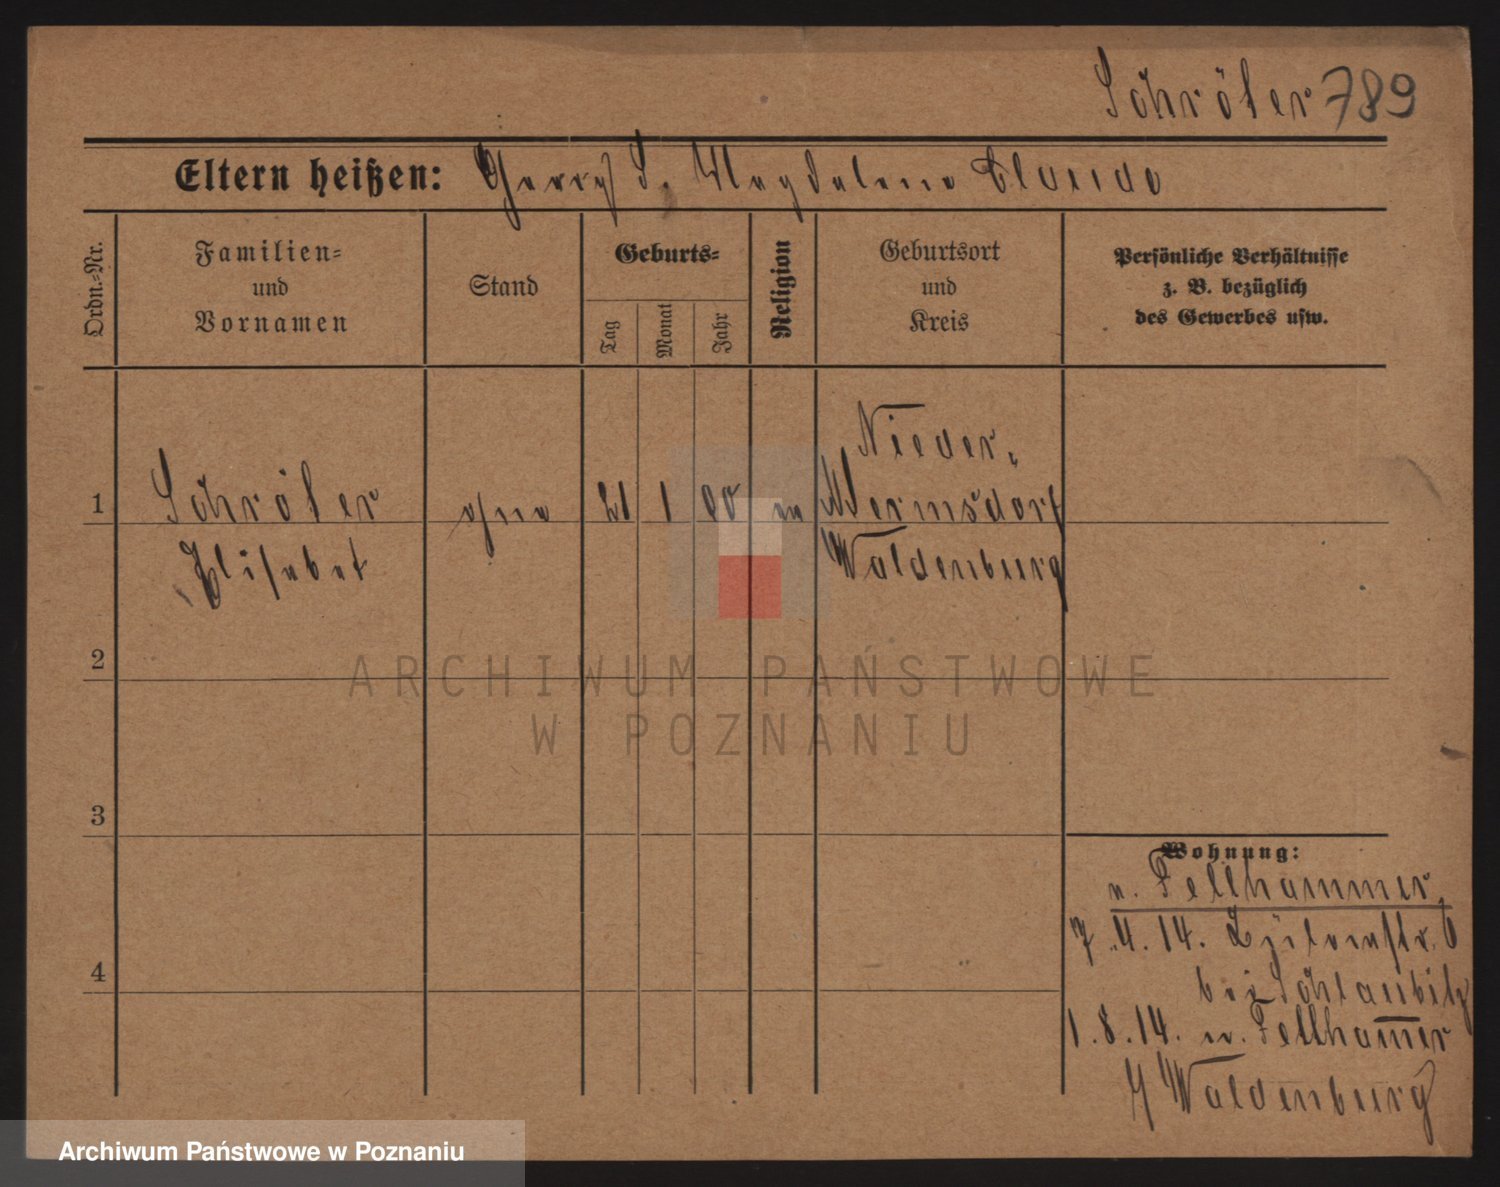 Schröter 789
Eltern heißen: Georg S. Magdalena
Ordn.-Nr.
Familien-
und
Vornamen
Stand
Geburts-
Tag
Monat
Jahr
Religion
Geburtsort
und
Kreis
Persönliche Verhältnisse
z. B. bezüglich
des Gewerbes usw.
Nieder-
1 Schröter ohne 21 1 90 ev Wermsdorf
Elisabet Waldenburg
2
ARCHIWUM PAŃSTWOWE
W POZNANIU
3
Wohnung:
v. Fellhammer
7.4.14. 6
4
bei Schlaubitz
1.8.14. n. Fellham̅er
Waldenburg
Archiwum Państwowe w Poznaniu